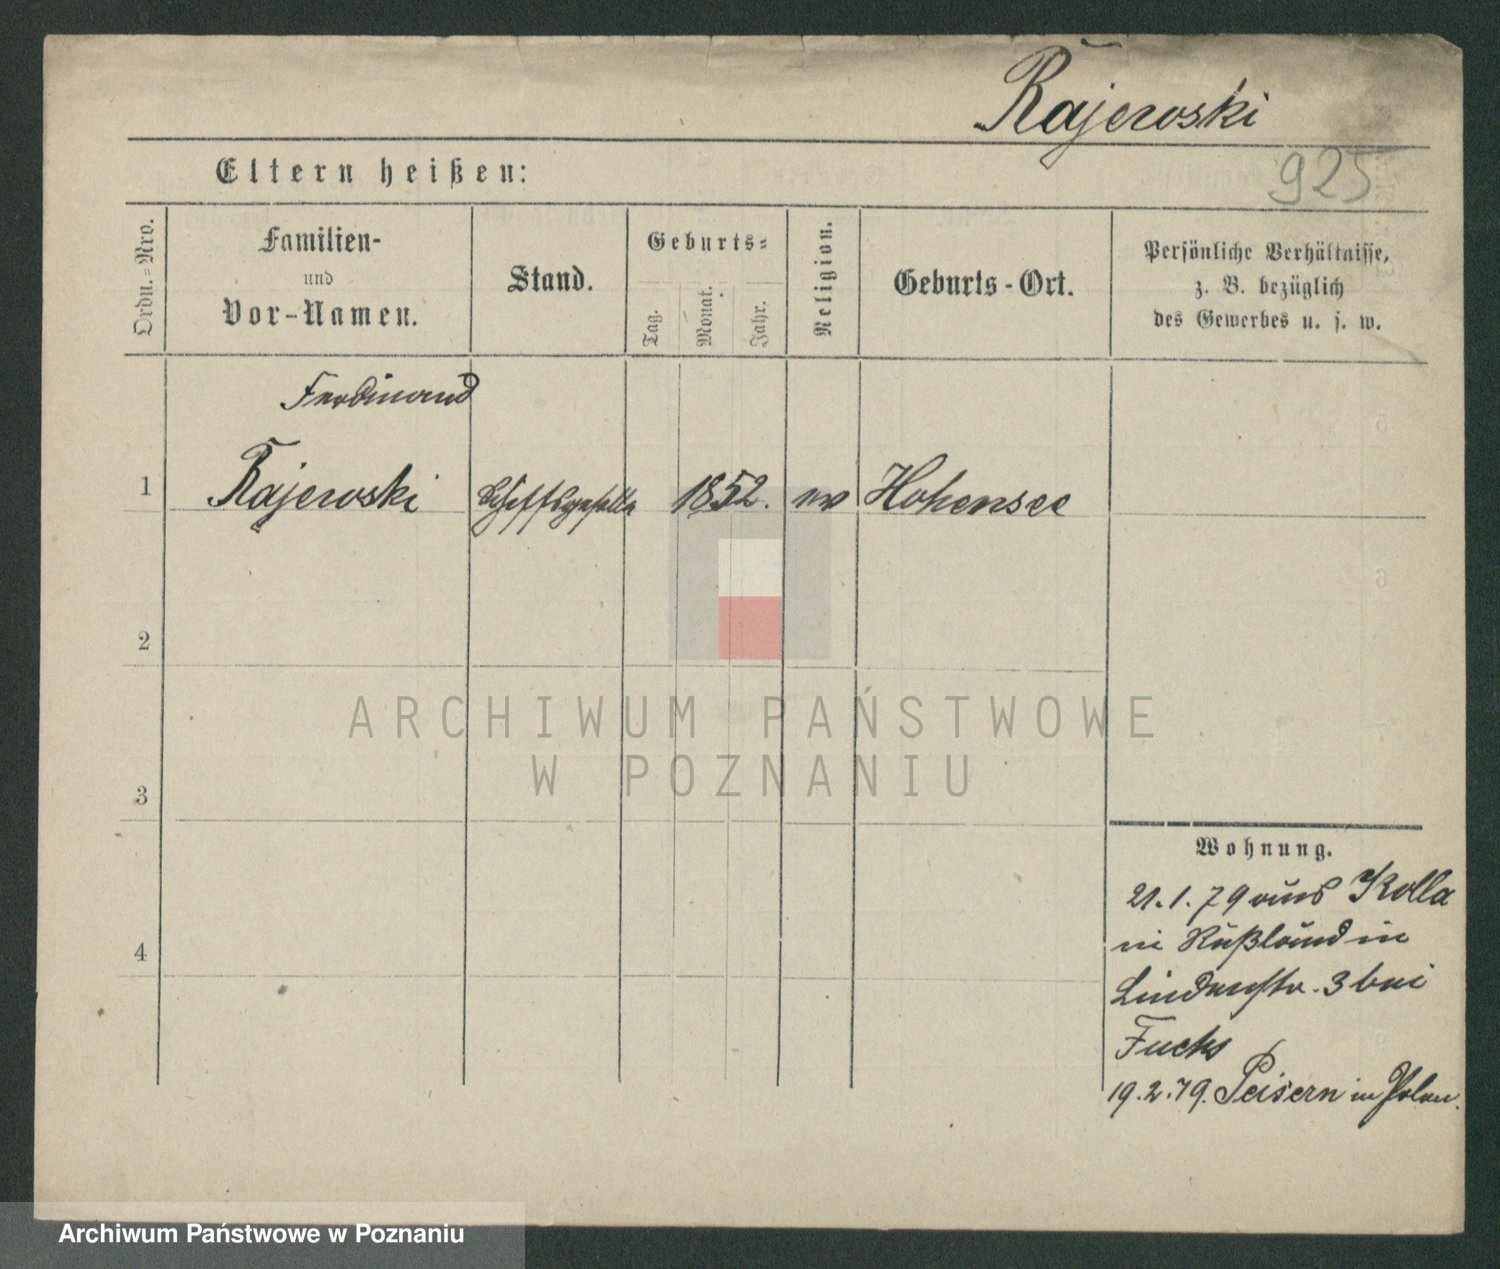 Rajewski
925
Eltern heißen:
Ordn.-Nro.
Familien-
und
Vor-Namen.
Stand.
Geburts-
Tag.
Monat.
Jahr.
Religion.
Geburts-Ort.
Persönliche Verhältnisse,
z. B. bezüglich
des Gewerbes u. s. w.
Ferdinand
1 Rajewski Schiffsgehilfe 1852. ev Hohensee
2
3
4
Wohnung.
21.1.79 aus Kolla
in Rußland in
Lindenstr. 3 bei
Fuchs
19.2.79. Peisern in Polen.
ARCHIWUM PAŃSTWOWE
W POZNANIU
Archiwum Państwowe w Poznaniu